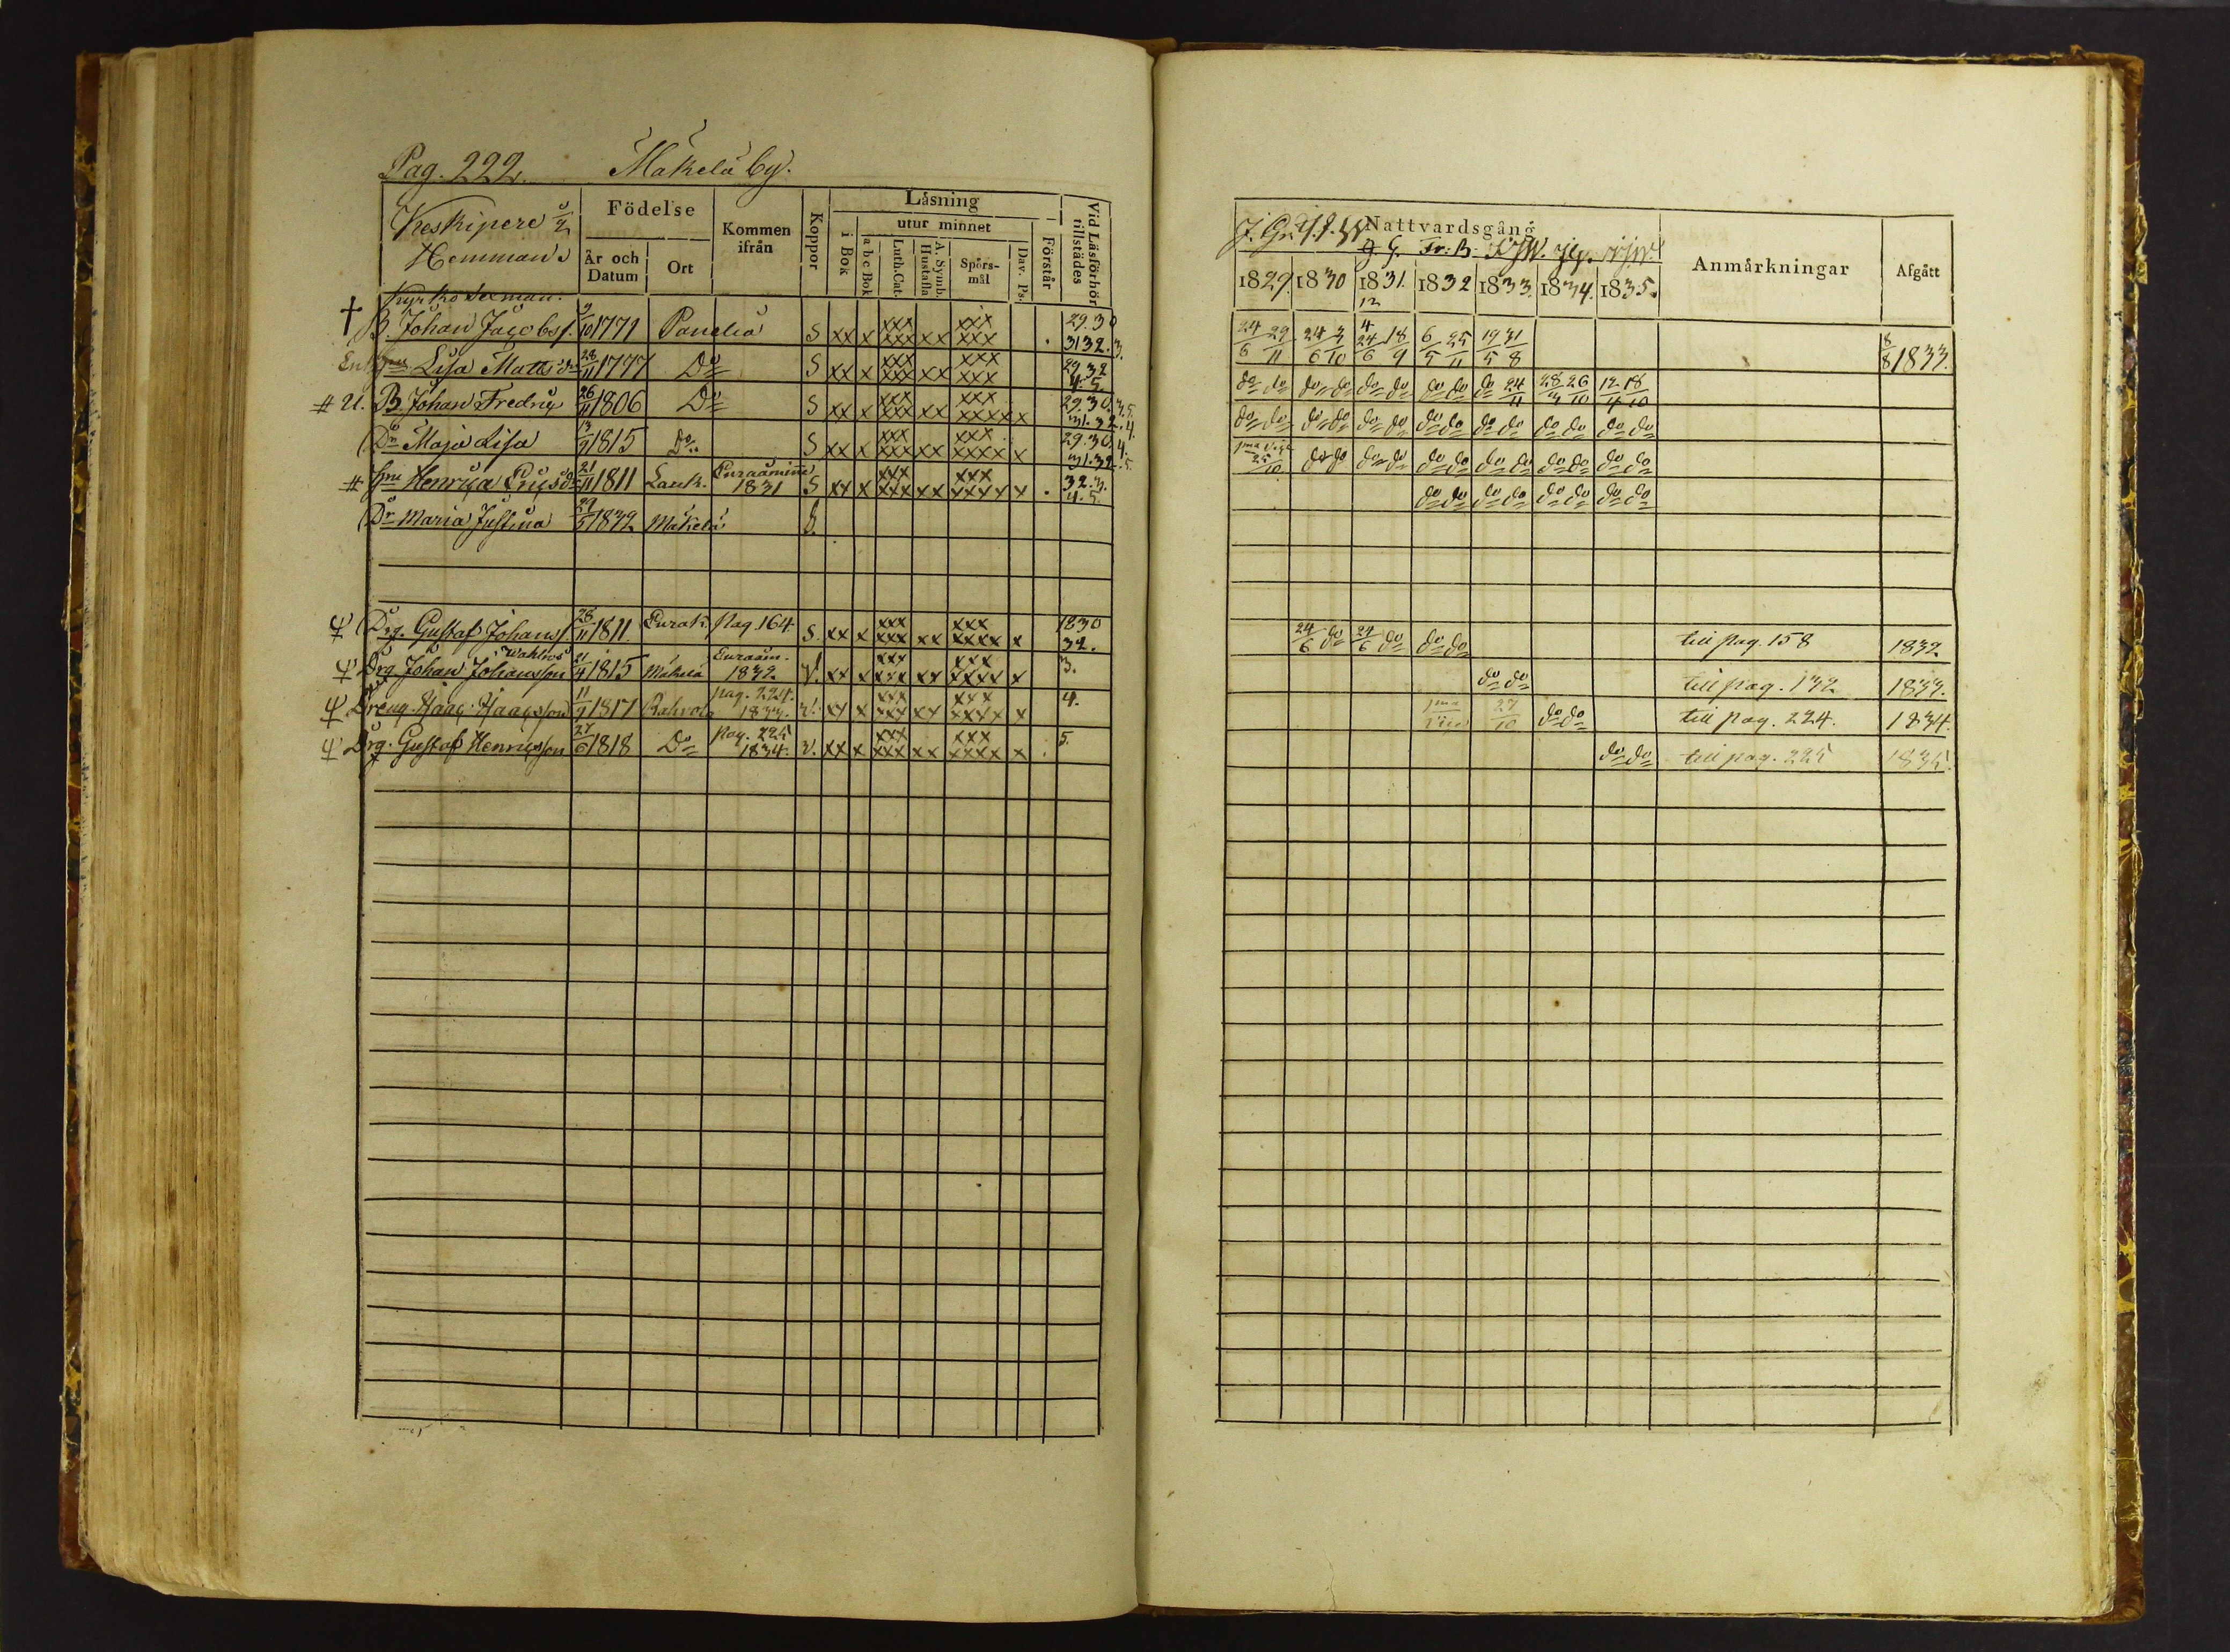 Pag. 222. Mäkelä by.
Keskipere
Hemman
Födelse
År och Datum
Ort
Kommen ifrån
Koppor
Läsning
i Bok
utur minnet
a b c Bok
Luth. Cat.
A. Symb. Hustafla
Spörsmål
Dav. Ps.
Förstår
Vid Läsförhör tillstädes
Johan Jacobss. 1771 Panelia S xx x xxx xxx xx xxx xxx 29. 30 31 32. 3.
Lisa Matts dr 28/11 1777 Do S xx x xxx xxx xx xxx xxx 29. 32 4. 5.
# U. B. Johan Fredric 26/11 1806 Do S xx x xxx xxx xx xxx xxxx x 29. 30. 3. 5. 31. 32. 4.
Dr Maja Lisa 13/9 1815 Do S xx x xxx xxx xx xxx xxxx x 29. 30. 4. 31. 32. 5.
# Henrica 21/11 1811 Lauk. Euraåminne 1831 S xx x xxx xxx xx xxx xxxx x 32. 3. 4. 5.
Dr Maria Justina 1832 Mäkelä
Drg. Gustaf Johanss. 28/11 1811 Eurak. Pag. 164 S. xx x xxx xxx xx xxx xxxx x 1830 32.
Drg. Johan Johansson 1815 Mäkelä Euraåm. 1832. V. xx x xxx xxx xx xxx xxxx x 3.
Dreng. Isaac Isaacsson 11/9 1817 Rahvola pag. 224. 1833. V. xx x xxx xxx xx xxx xxxx x 4.
Drg. Gustaf Henricsson 27/6 1818 Do pag. 225 1834. V. xx x xxx xxx xx xxx xxxx x 5.
Nattvardsgång
Anmärkningar
Afgått
1829. 1830 1831. 1832 1833. 1834. 1835.
24/6 29/11 24/6 3/10 24/6 18/9 6/5 25/11 19/5 31/8 8/8 1833.
do do do do do do do do do 24/11 28/3 26/10 12/4 18/10
do do do do do do do do do do do do do do
25/10 do do do do do do do do do do do do
do do do do do do do do
24/6 do 24/6 do do do till pag. 158 1832.
do do till pag. 132 1833.
27/10 do do till pag. 224. 1834.
do do till pag. 225 1835.